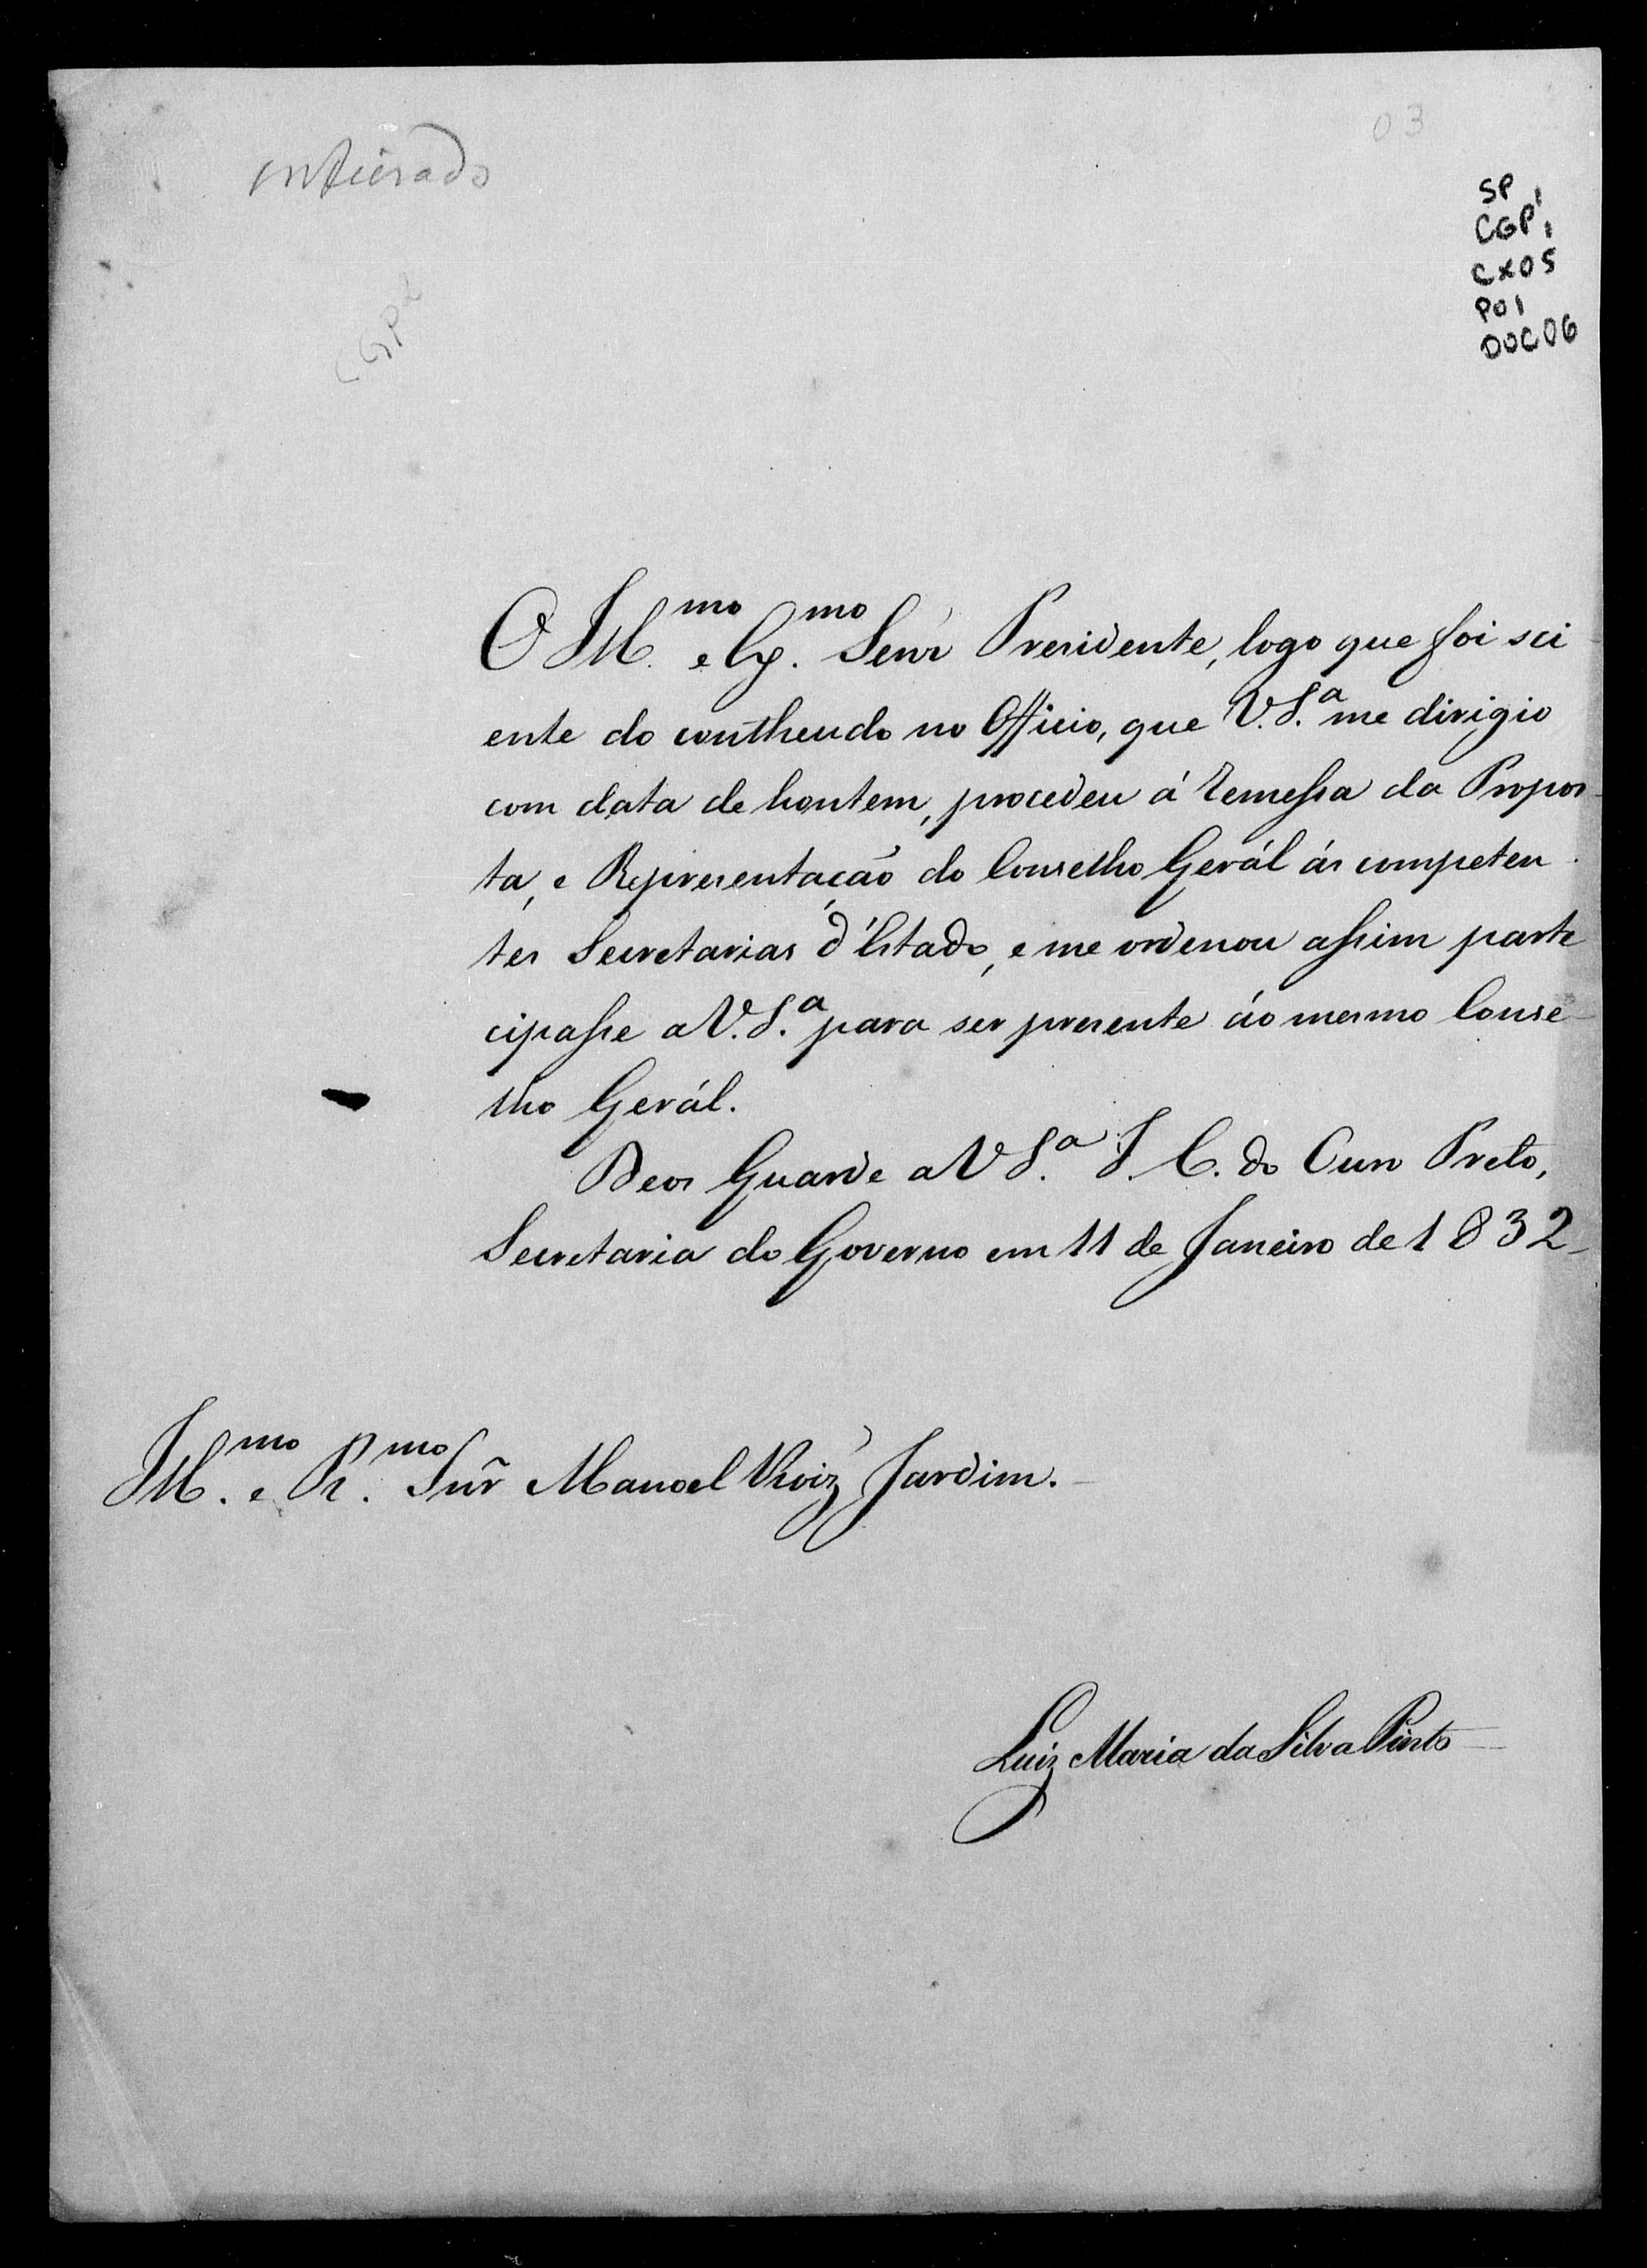 03
inteirado
SP
CGP1,
CX05
P01
DOC06
CGP1
O Ill.mo e Ex.mo Senr Presidente, logo que foi sci
ente do contheudo no Officio, que V.S.a me dirigio
com data de hontem, procedeu á remessa da Propos-
ta, e Representação do Conselho Gerál ás competen-
tes Secretarias d'Estado, e me ordenou assim parte
cipasse a V.S.a para ser presente áo mesmo Conse-
lho Gerál.
Deos Guarde a V S.a I. C. do Ouro Preto,
Secretaria do Governo em 11 de Janeiro de 1832_
Ill.mo e R.mo Snr̃ Manoel Roiz' Jardim.
Luiz Maria da Silva Pinto